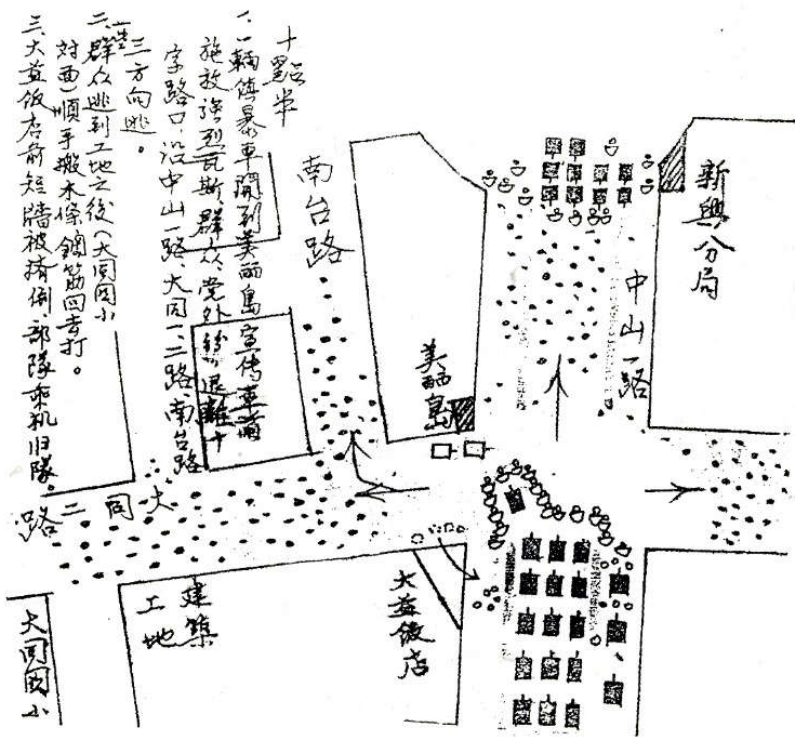 十點半
一、一輛鎮暴車開到美丽島宣传車前
施放強烈瓦斯,群众、党外紛紛退離十
字路口,沿中山一路、大同一、二路、南台路
三方向逃。
二、一些群众逃到工地之後(大同國小
对面)順手搬木條、鋼筋回去打。
三、大益饭店前短牆被擠倒,部隊乘机归隊。
南台路
美丽島
中山一路
新興分局
大同二路
大益饭店
建築
工地
大同國小